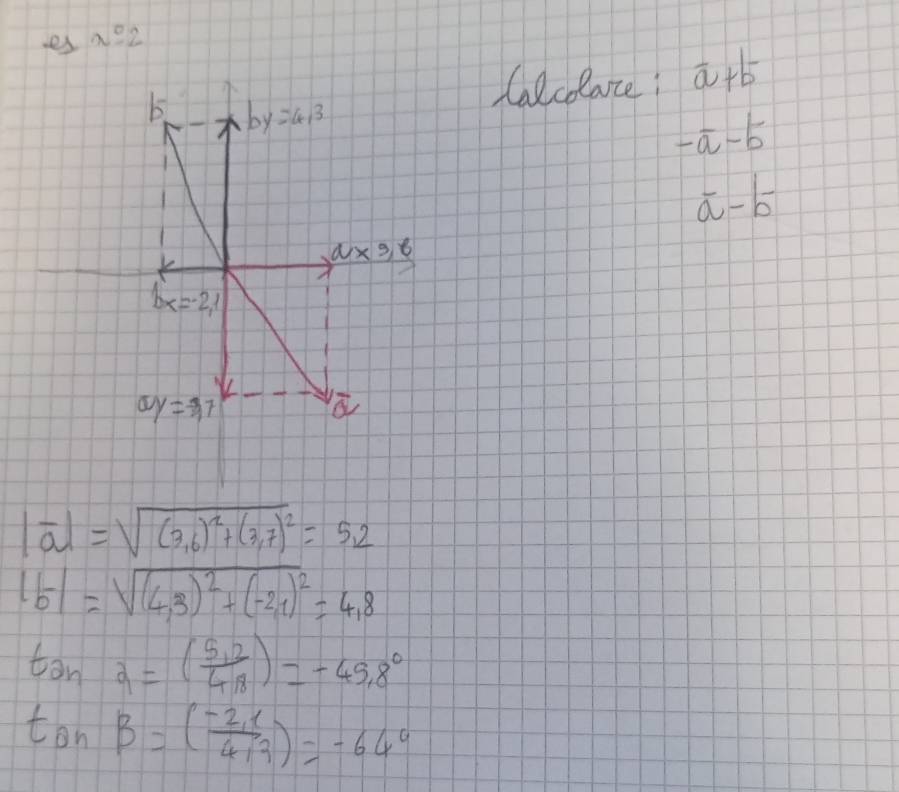 es n°2
Calcolare: a̅+b̅
-a̅-b̅
a̅-b̅
b̅
by=4,3
ax 3,6
bx=-2,1
ay=-3,7
a̅
|a̅| = √(3,6)²+(3,7)² = 5,2
|b̅| = √(4,3)²+(-2,1)² = 4,8
tan α = (5,2/4,8) = -45,8°
tan β = (-2,1/4,3) = -64°